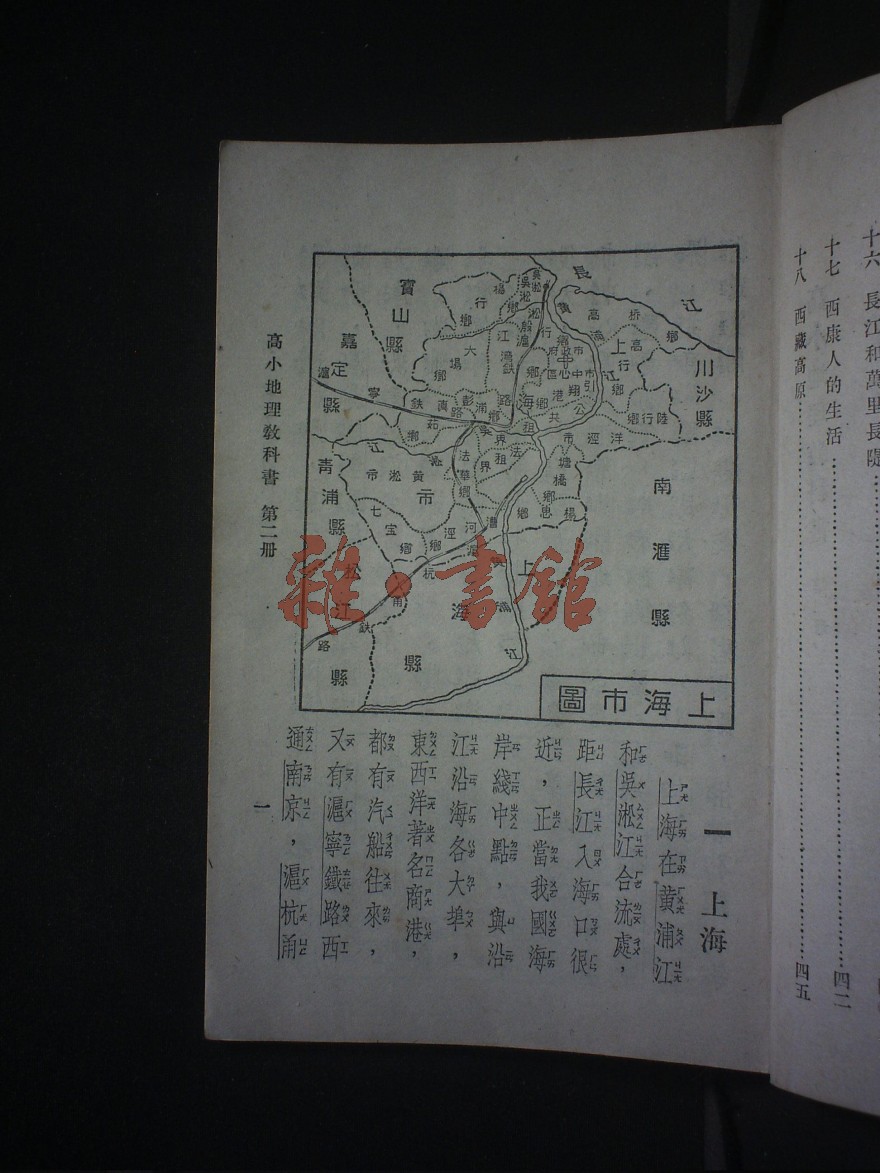 十六 長江和萬里長隄
十七 西康人的生活 四二
十八 西藏高原 四五
一 上海
上海在黃浦江
和吳淞江合流處,
距長江入海口很
近,正當我國海
岸綫中點,與沿
江沿海各大埠,
東西洋著名商港,
都有汽船往來,
又有滬寧鐵路西
通南京,滬杭甬
上海市圖
長江
寶山縣
嘉定縣
青浦縣
松江縣
上海縣
南滙縣
川沙縣
楊行鄉
吳淞鄉
大塲鄉
江灣鄉
高橋鄉
高行鄉
陸行鄉
洋涇市
塘橋鄉
楊思鄉
彭浦鄉
法華鄉
法租界
七寶鄉
漕河涇鄉
市中心區
引翔港鄉
滬寧鉄路
滬杭甬鉄路
高小地理敎科書 第二册
一
雜·書館